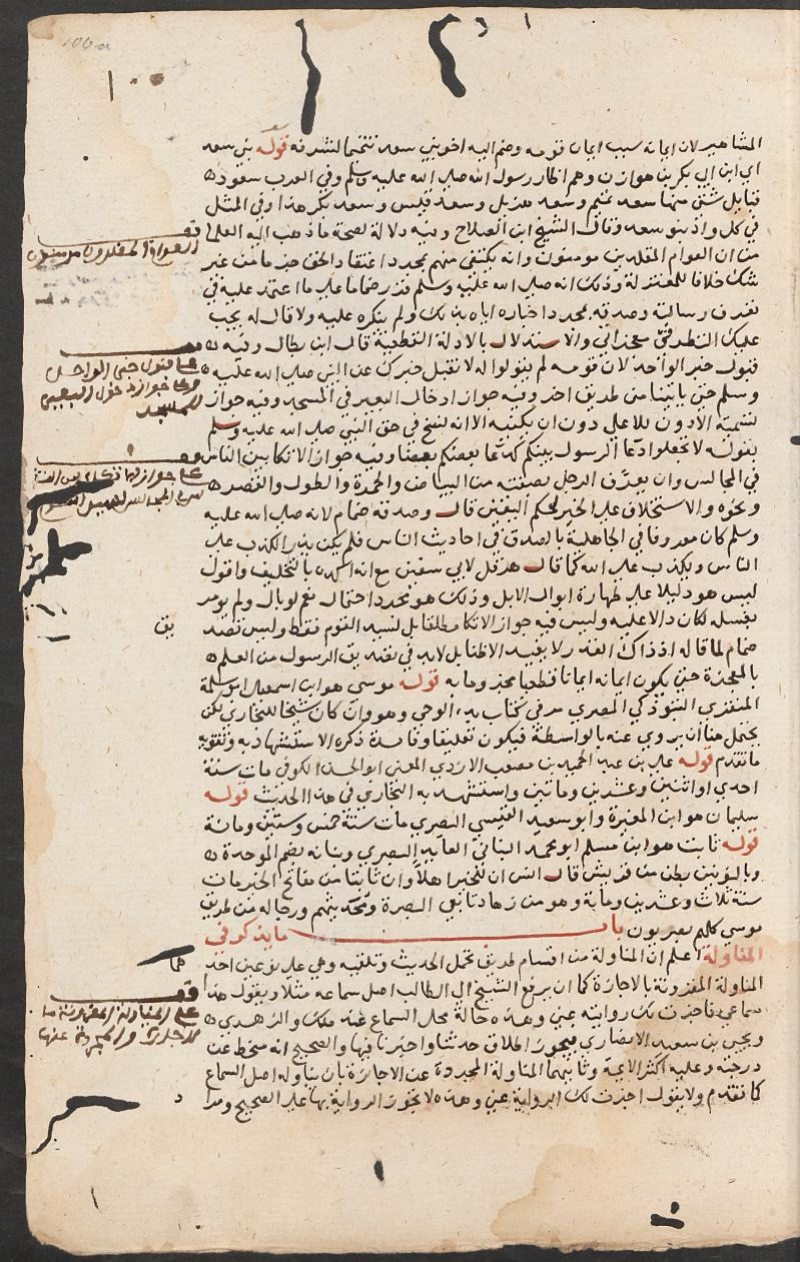 100a
١٠٠
المشاهير لان ايمانه سبب ايمان قومه وضم اليه اخو بني سعد تتميما لشرفه قوله بني سعد
اي ابن ابي بكر بن هوازن وهم اظار رسول الله صلى الله عليه وسلم وفي العرب سعود
قبايل شتى منها سعد تميم وسعد هذيل وسعد قيس وسعد بكر هذا وفي المثل
في كل واد بنو سعد وقال الشيخ ابن الصلاح وفيه دلالة لصحة ما ذهب اليه العلما
من ان العوام المقلدين مومنون وانه يكتفى منهم بمجرد اعتقاد الحق جزما من غير
شك خلافا للمعتزلة وذلك انه صلى الله عليه وسلم قرر ضماما على ما اعتمد عليه في
تعرف رسالته وصدقه بمجرد اخباره اياه بذلك ولم ينكره عليه ولا قال له يجب
عليك النظر في معجزاتي والاستدلال بالادلة القطعية قال ابن بطال وفيه
قبول خبر الواحد لان قومه لم يقولوا له لا نقبل خبرك عن النبي صلى الله عليه
وسلم حتى ياتينا من طريق اخر وفيه جواز ادخال البعير في المسجد وفيه جواز
تسمية الادون للاعلى دون ان يكنيه الا انه نسخ في حق النبي صلى الله عليه وسلم
بقوله لا تجعلوا دعا الرسول بينكم كدعا بعضكم بعضا وفيه جواز الاتكا بين الناس
في المجالس وان يعرف الرجل بصفته من البياض والحمرة والطول والقصر
ونحوه والاستحلاف على الخبر لحكم اليقين قال وصدقه ضمام لانه صلى الله عليه
وسلم كان معروفا في الجاهلية بالصدق في احاديث الناس فلم يكن يذر الكذب على
الناس ويكذب على الله كما قال هرقل لابي سفين مع انه اكده بالتحليف واقول
ليس هو دليلا على طهارة ابوال الابل وذلك هو مجرد احتمال نعم لو بال ولم يومر
بغسله لكان دالا عليه وليس فيه جواز الاتكا مطلقا بل لسيد القوم فقط وليس تصد
ضمام لما قاله اذ ذاك القدر لا يفيد الا ظنا بل لا بد في تصديق الرسول من العلم
بالمعجزة حتى يكون ايمانه ايمانا قطعيا مجزوما به قوله موسى هو ابن اسمعيل ابو سلمة
المنقري التبوذكي البصري مر في كتاب بدء الوحي وهو وان كان شيخا للبخاري لكن
يحتمل هنا ان يروي عنه بالواسطة فيكون تعليقا وفائدة ذكره الاستشهاد به وتقوية
ما تقدم قوله علي بن عبد الحميد بن مصعب الازدي المعني ابو الحسن الكوفي مات سنة
احدى او اثنتين وعشرين وماتين واستشهد به البخاري في هذا الحديث قوله
سليمان هو ابن المغيرة وابو سعيد القيسي البصري مات سنة خمس وستين ومائة
قوله ثابت هو ابن مسلم ابو محمد البناني العابد البصري وبنانه بضم الموحدة
وبالنونين بطن من قريش قال انس ان للخير اهلا وان ثابتا من مفاتح الخير مات
سنة ثلاث وعشرين ومایة وهو من زهاد تابعي البصرة ومحدثيهم ورجاله من طريق
موسى كلهم بصريون باب ما يذكر في
المناولة اعلم ان المناولة من اقسام طريق تحمل الحديث وتلقيه وهي على نوعين احدهما
المناولة المقرونة بالاجازة كما ان يرفع الشيخ الى الطالب اصل سماعه مثلا ويقول هذا
سماعي فاجزت لك روايته عني وهذه حالة محل السماع عند ملك والزهري
ويحيى بن سعيد الانصاري فيجوز اطلاق حدثنا واخبرنا فيها والصحيح انه منحط عن
درجته وعليه اكثر الايمة وثانيهما المناولة المجردة عن الاجازة بان يناوله اصل السماع
كما تقدم ولا يقول اجزت لك الرواية عني وهذه لا تجوز الرواية بها على الصحيح ومراد
قف
العوام المقلدون مومنون
على قبول خبر الواحد
وعلى جواز دخول البعير
المسجد
قف
على جواز
قف
على المناولة المقرونة
بالاجازة والمجردة عنها